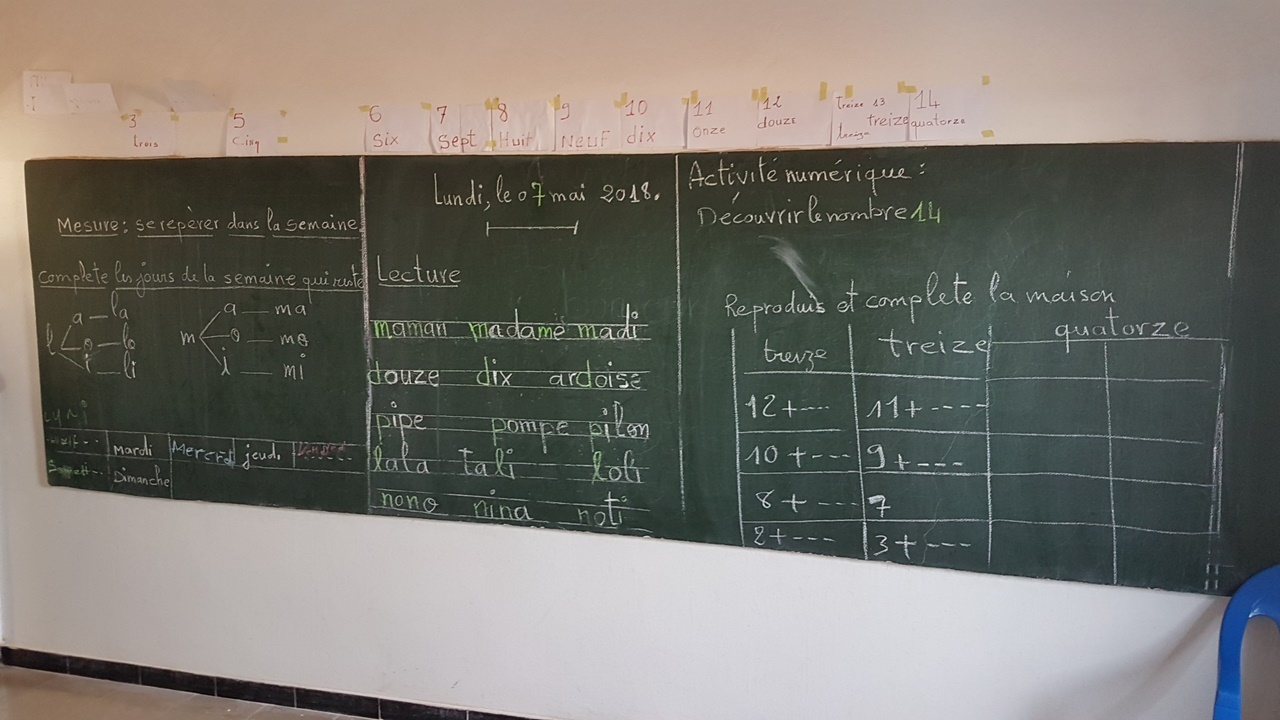 3 5 6 7 8 9 10 11 12 treize 13 14
trois Cinq Six Sept Huit NeuF dix onze douze treize quatorze
Mesure: se repèrer dans la semaine
complete les jours de la semaine qui reste
l a la
o lo
i li
m a ma
o mo
i mi
mardi Mercredi jeudi
Dimanche
Lundi, le 07 mai 2018.
Lecture
maman madame madi
douze dix ardoise
pipe pompe pilon
lala tali loli
nono nina noti
Activité numérique:
Découvrir le nombre 14
Reproduis et complete la maison
treize treize quatorze
12+--- 11+----
10+--- 9+---
8+--- 7
2+--- 3+---